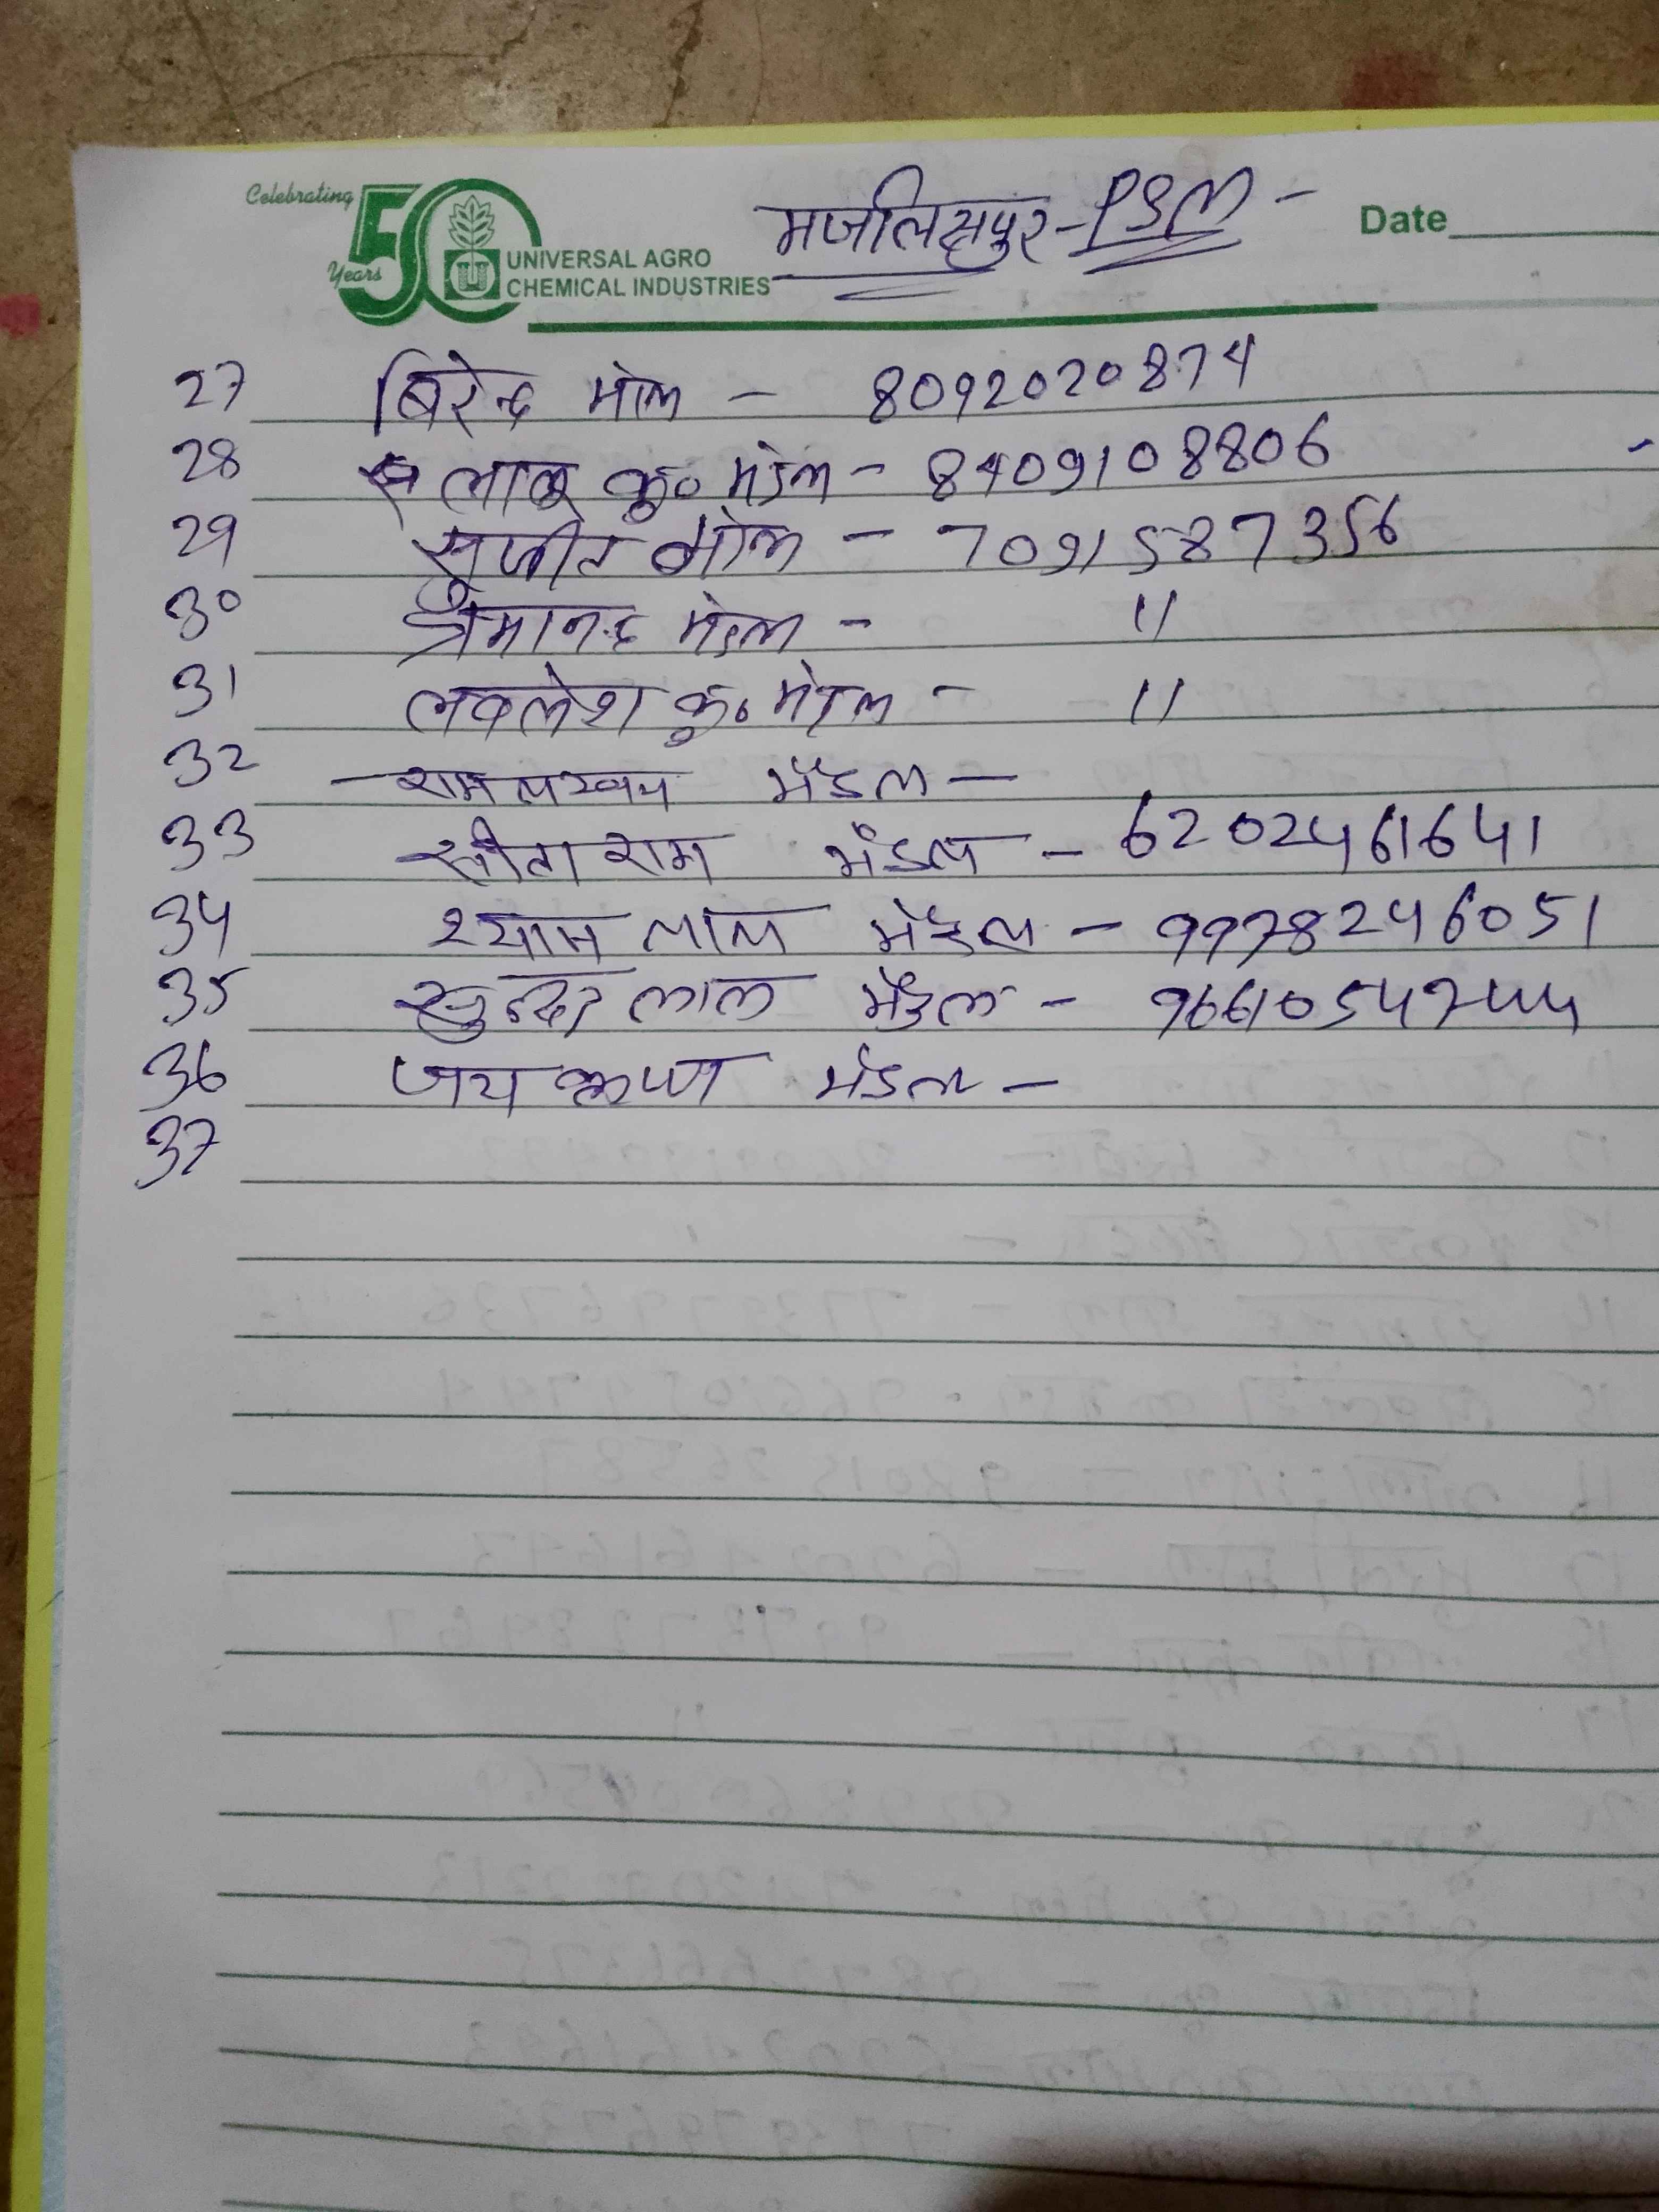 Celebrating 50 Years
UNIVERSAL AGRO
CHEMICAL INDUSTRIES
मजलिसपुर - PSM -
Date
27 बिरेन्द्र मंडल - 8092020874
28 लालू कु० मंडल - 8409108806
29 सुजीत मंडल - 7091587356
30 प्रेमानन्द मंडल - "
31 लवलेश कु० मंडल - "
32 राम मंडल -
33 सीता राम मंडल - 6202461641
34 श्याम लाल मंडल - 9978246051
35 सुन्दर लाल मंडल - 9661054744
36 जय मंडल -
37